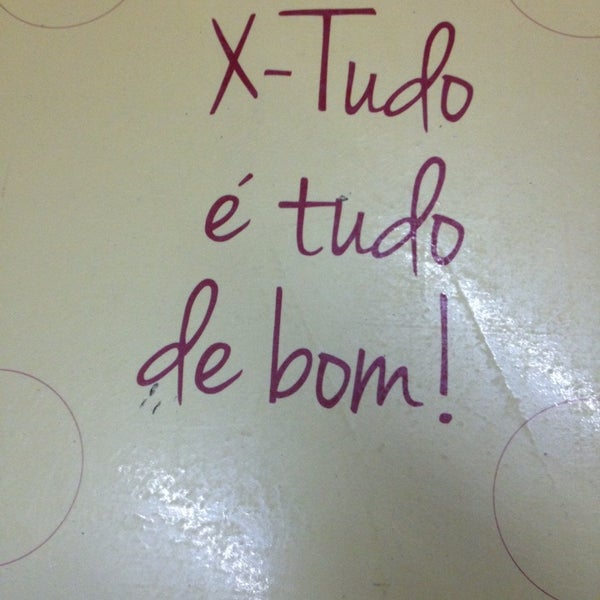 X-Tudo
é tudo
de bom!